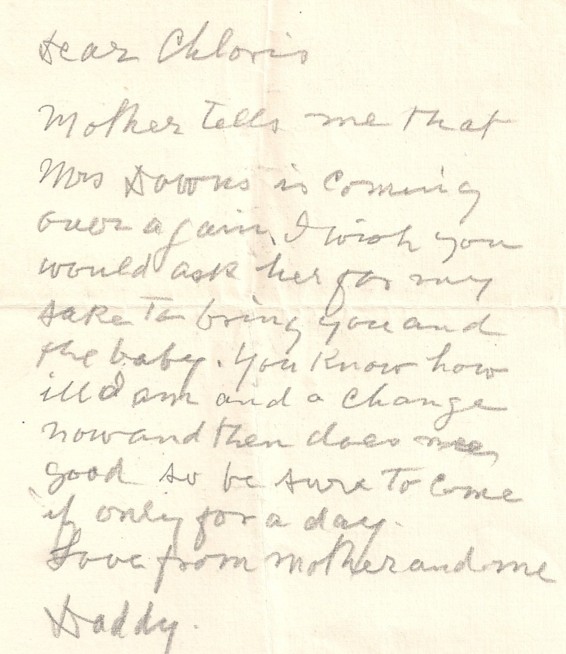 Dear Chloris
Mother tells me that
Mrs Downs is coming
over again, I wish you
would ask her for my
sake to bring you and
the baby. You know how
ill I am and a change
now and then does me
good so be sure to come
if only for a day.
Love from mother and me
Daddy.